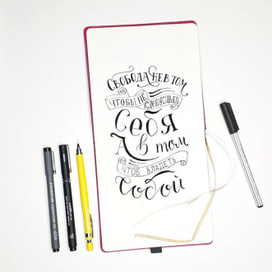 СВОБОДА НЕ В ТОМ,
ЧТОБЫ НЕ СДЕРЖИВАТЬ
Себя
А в том
ЧТОБ ВЛАДЕТЬ
Собой